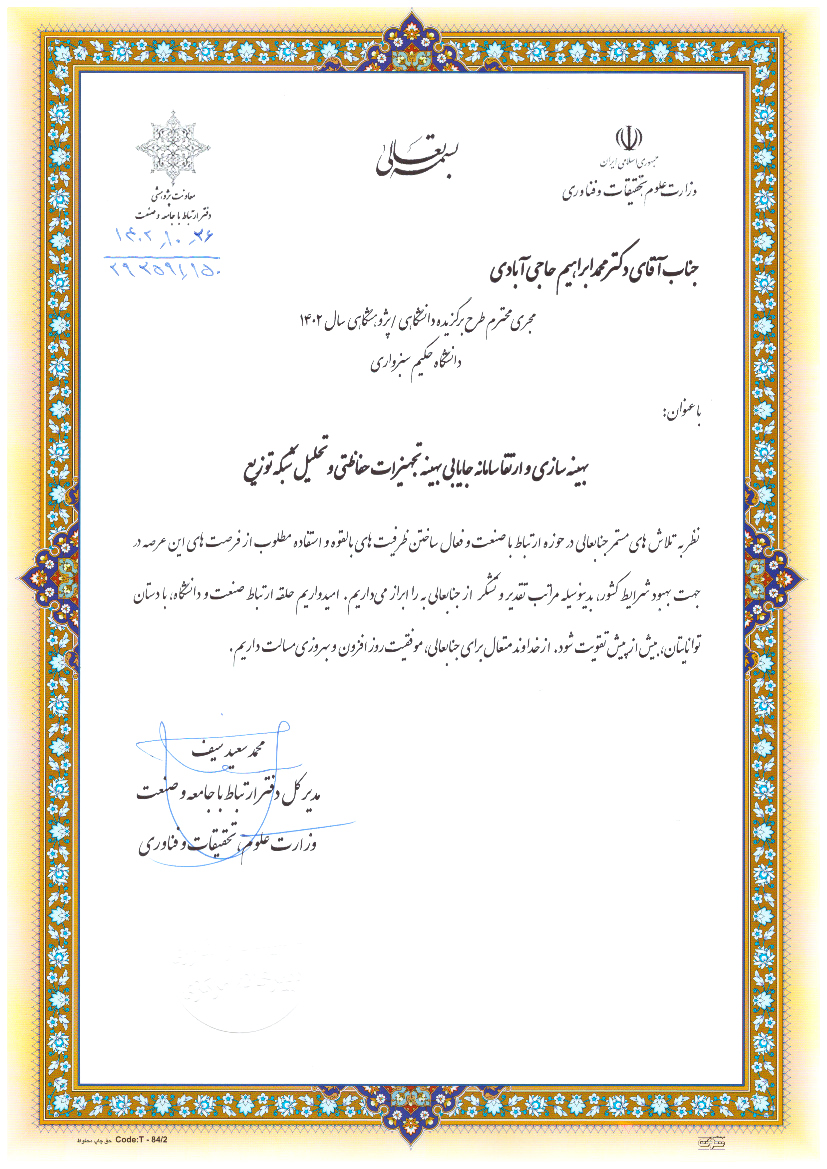 بسمه تعالی
جمهوری اسلامی ایران
وزارت علوم، تحقیقات و فناوری
معاونت پژوهشی
دفتر ارتباط با جامعه و صنعت
۱۴۰۲/۱۰/۲۶
جناب آقای دکتر محمد ابراهیم حاجی آبادی
مجری محترم طرح برگزیده دانشگاهی / پژوهشگاهی سال ۱۴۰۲
دانشگاه حکیم سبزواری
با عنوان:
بهینه سازی و ارتقا سامانه جایابی بهینه تجهیزات حفاظتی و تحلیل شبکه توزیع
نظر به تلاش های مستمر جنابعالی در حوزه ارتباط با صنعت و فعال ساختن ظرفیت های بالقوه و استفاده مطلوب از فرصت های این عرصه در
جهت بهبود شرایط کشور، بدینوسیله مراتب تقدیر و تشکر از جنابعالی به را ابراز می‌داریم. امیدواریم حلقه ارتباط صنعت و دانشگاه، با دستان
توانایتان، بیش از پیش تقویت شود. از خداوند متعال برای جنابعالی، موفقیت روز افزون و بهروزی مسالت داریم.
محمد سعید سیف
مدیر کل دفتر ارتباط با جامعه و صنعت
وزارت علوم، تحقیقات و فناوری
حق چاپ محفوظ Code:T - 84/2